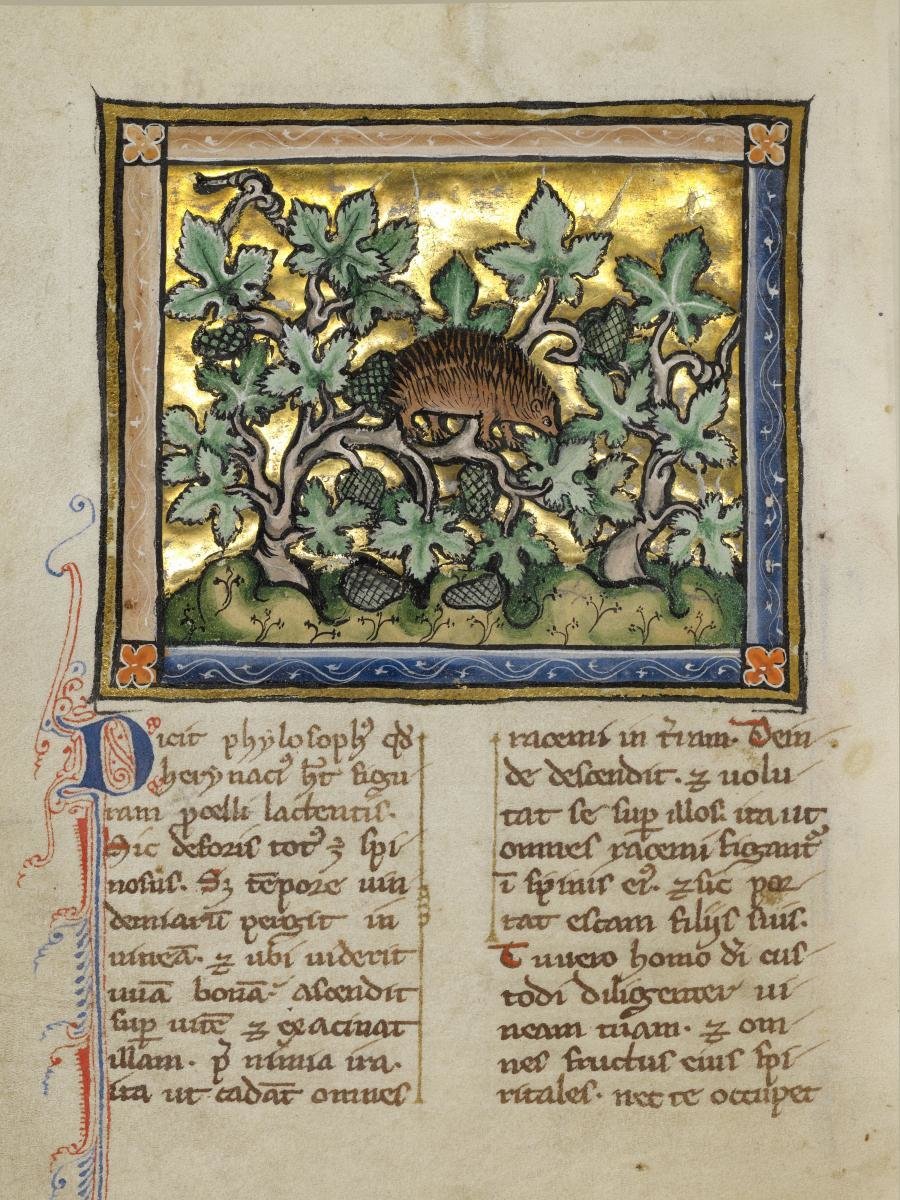 Dicit phylosophꝰ qđ
herynaciꝰ ħt figu
ram porcelli lactentis.
Sic deforis totꝰ ē spi
nosus. Sꝫ tēpore uin
demiarū pergit in
uineā. ⁊ ubi uiderit
uuā bonā. ascendit
suꝑ uitē ⁊ exacinat
illam. ꝑ nimia ira.
ita ut cadāt omnes
racemi in t̄ram. Dein
de descendit. ⁊ uolu
tat se suꝑ illos. ita ut
omnes racemi figantᷣ
ī spinis eiꝰ. ⁊ sic por
tat escam filijs suis.
Tu uero homo dī cus
todi diligenter ui
neam tuam. ⁊ om
nes fructus eius spi
ritales. nec te occupet